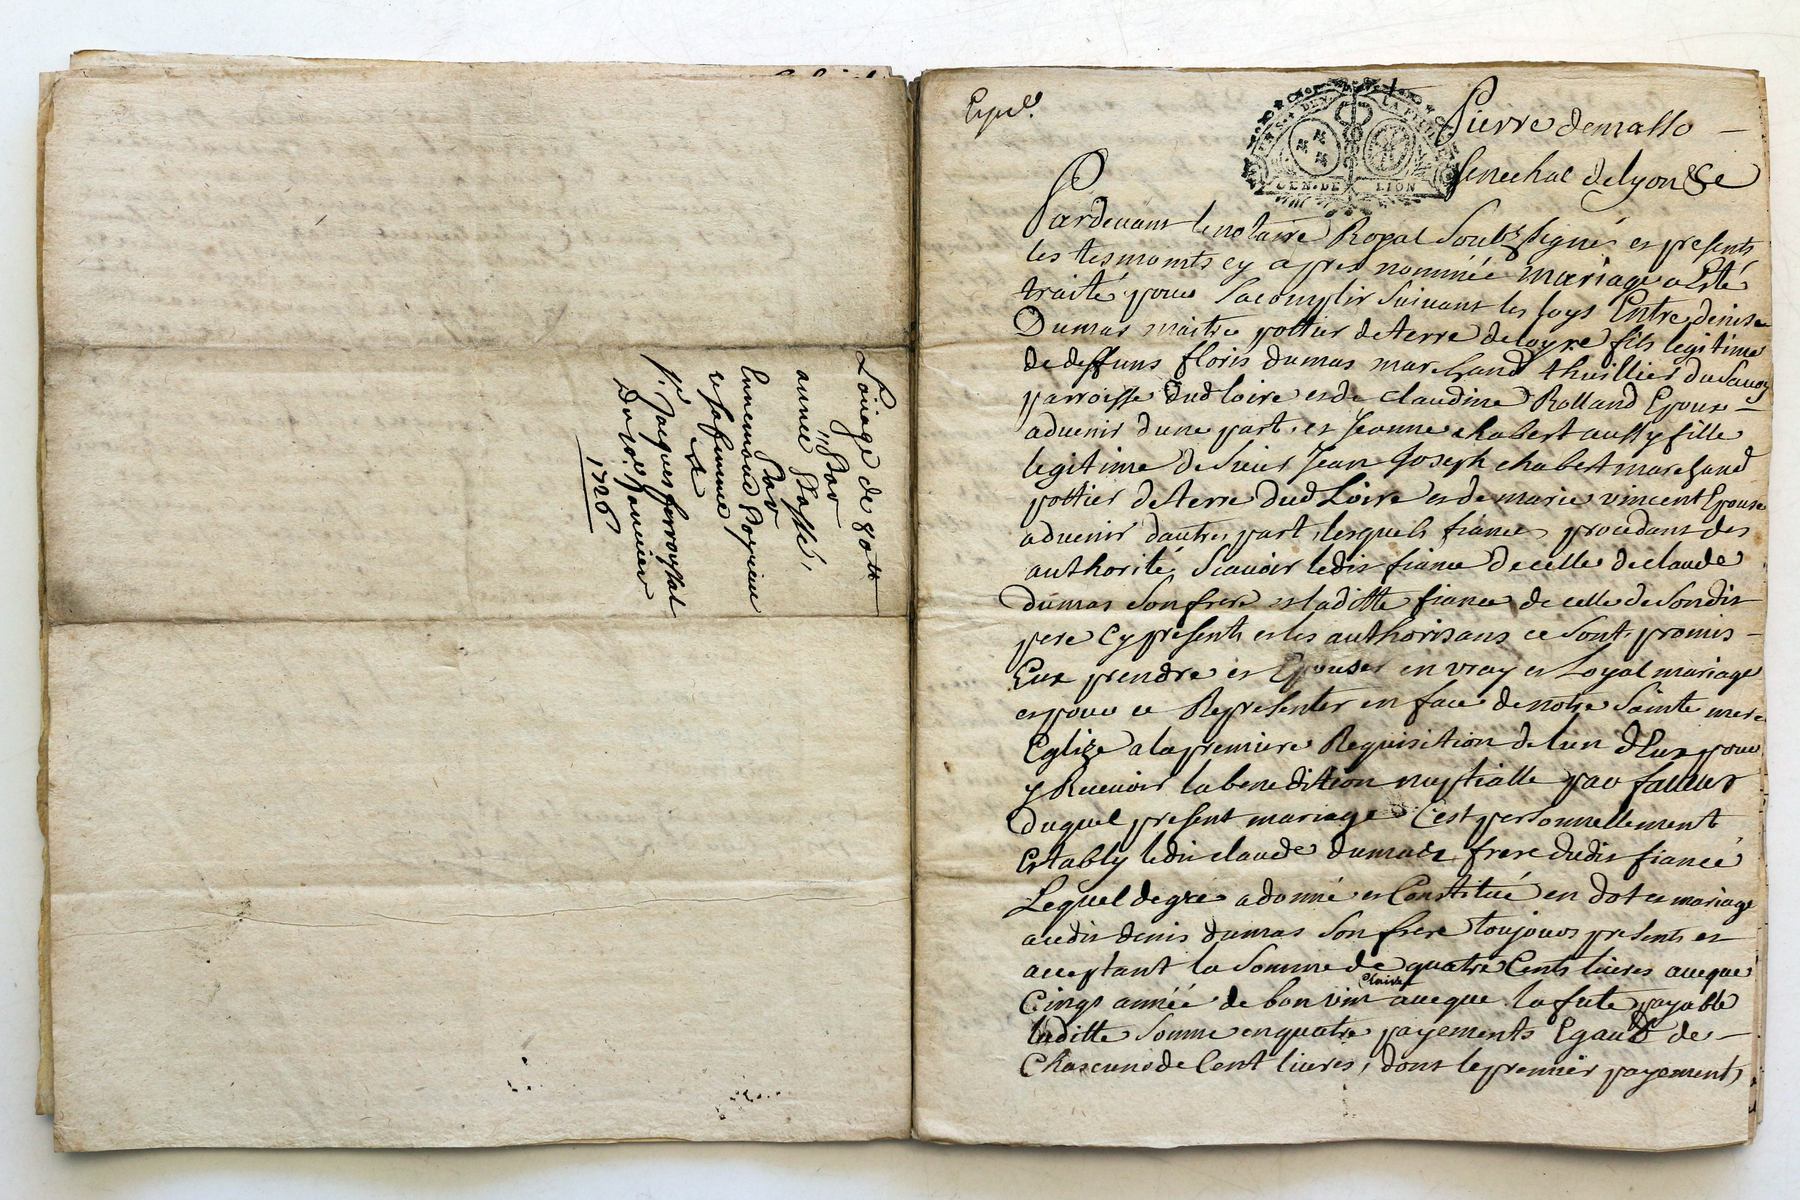 Louage de 80 ₶
par
année passé,
par
Ennemond
et sa femme
a
Sr. Jacques
Du 20e Janvier
1726
Exped.
GEN. DE LION
Pierre demasso —
senechal de lyon &c
Pardevant le notaire Royal Soubz signé et presents
les tesmoints cy apres nommée mariage a Esté
traité pour sacomplir suivant les loys Entre denis
Dumas maitre pottier de terre de loyre fils legitime
de deffuns floris dumas marchand thuillier du
parroisse dud loire et de claudine Rolland Epoux —
advenir d'une part, et Jeanne chabert aussy fille
legitime de sieur Jean Joseph chabert marchand
pottier de terre dud Loire et de marie vincent Epouse
advenir d'autre part, lesquels fiance procedant des
authorité sçavoir ledit fiance de celle de claude
dumas son frere et laditte fiancee de celle de sondit
pere cy presents et les authorisans ce sont promis —
Eux prendre et Epouser en vray et Loyal mariage
et pour ce Representer en face de notre Sainte mere
Eglize a la premiere Requisition de lun dEux pour
y Recevoir la benedition nuptialle par faveur
duquel present mariage C'est personnellement
Estably ledit claude dumas frere dudit fiancé
Lequel de gré a donné et Constitué en dot et mariage
audit denis dumas son frere toujours presents et
acceptant la somme de quatre Cents livres avecque
Cinqs année de bon vin clairet avecque la fute payable
laditte somme en quatre payements Egaux de —
Chascune de Cent livres, dont le premier payements